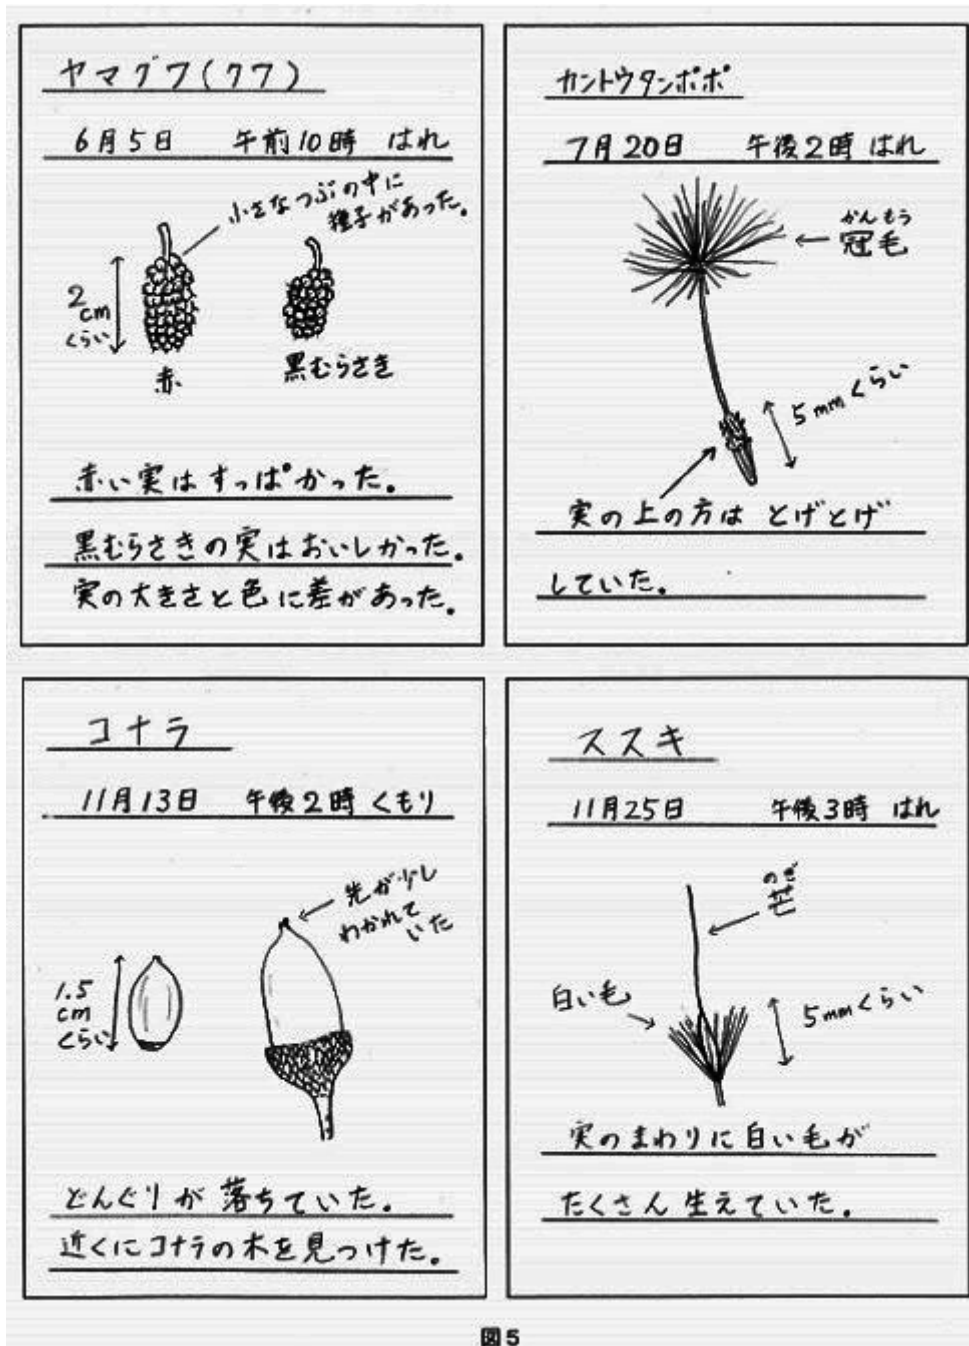 ヤマグワ(クワ)
6月5日 午前10時 はれ
小さなつぶの中に
種子があった。
2
cm
くらい
赤
黒むらさき
赤い実はすっぱかった。
黒むらさきの実はおいしかった。
実の大きさと色に差があった。
カントウタンポポ
7月20日 午後2時 はれ
かんもう
冠毛
5mmくらい
実の上の方は とげとげ
していた。
コナラ
11月13日 午後2時 くもり
先が少し
わかれて
いた
1.5
cm
くらい
どんぐりが落ちていた。
近くにコナラの木を見つけた。
ススキ
11月25日 午後3時 はれ
のぎ
芒
白い毛
5mmくらい
実のまわりに白い毛が
たくさん生えていた。
図5